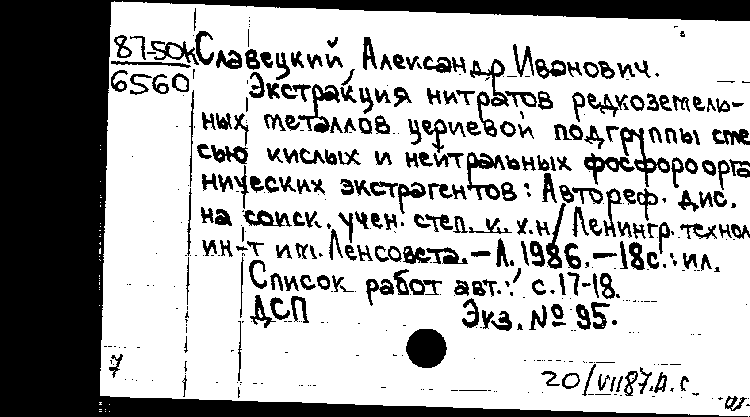 87-50к Славецкий, Александр Иванович.
6560 Экстракция нитратов редкоземель-
ных металлов цериевой подгруппы сме
сью кислых и нейтральных фосфороорга
нических экстрагентов: Автореф. дис.
на соиск. учен. степ. к. х.н/Ленингр. технол
ин-т им. Ленсовета.-Л. 1986.-18с.: ил.
Список работ авт.: с.17-18.
ДСП Экз. № 95.
7
20/VII87.